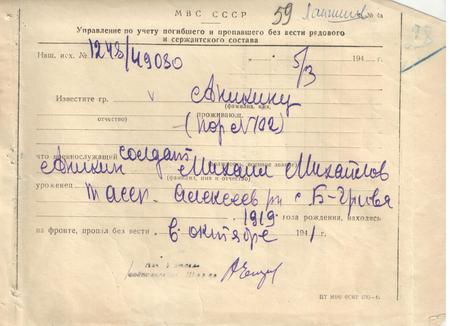 МВС СССР
59
№ 4а
Управление по учету погибшего и пропавшего без вести рядового
и сержантского состава
Наш. исх. № 1248/49030 5/3 194 г.
Известите гр. Аникину
(фамилия, имя,
отчество) проживающ.
что военнослужащий солдат
Аникин Михаил Михайлов
(фамилия, имя и отчество)
уроженец Тасср. Алексеев р-н с. Б-Грива
1919 года рождения, находясь
на фронте, пропал без вести в октябре 1941 г.